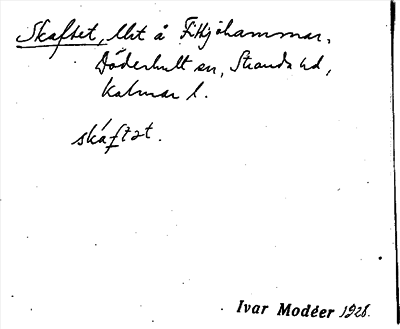 Skaftet, Mst å Fittjehammar,
Döderhult sn, Stranda hd,
Kalmar l.
skáftət.
Ivar Modéer 1928.